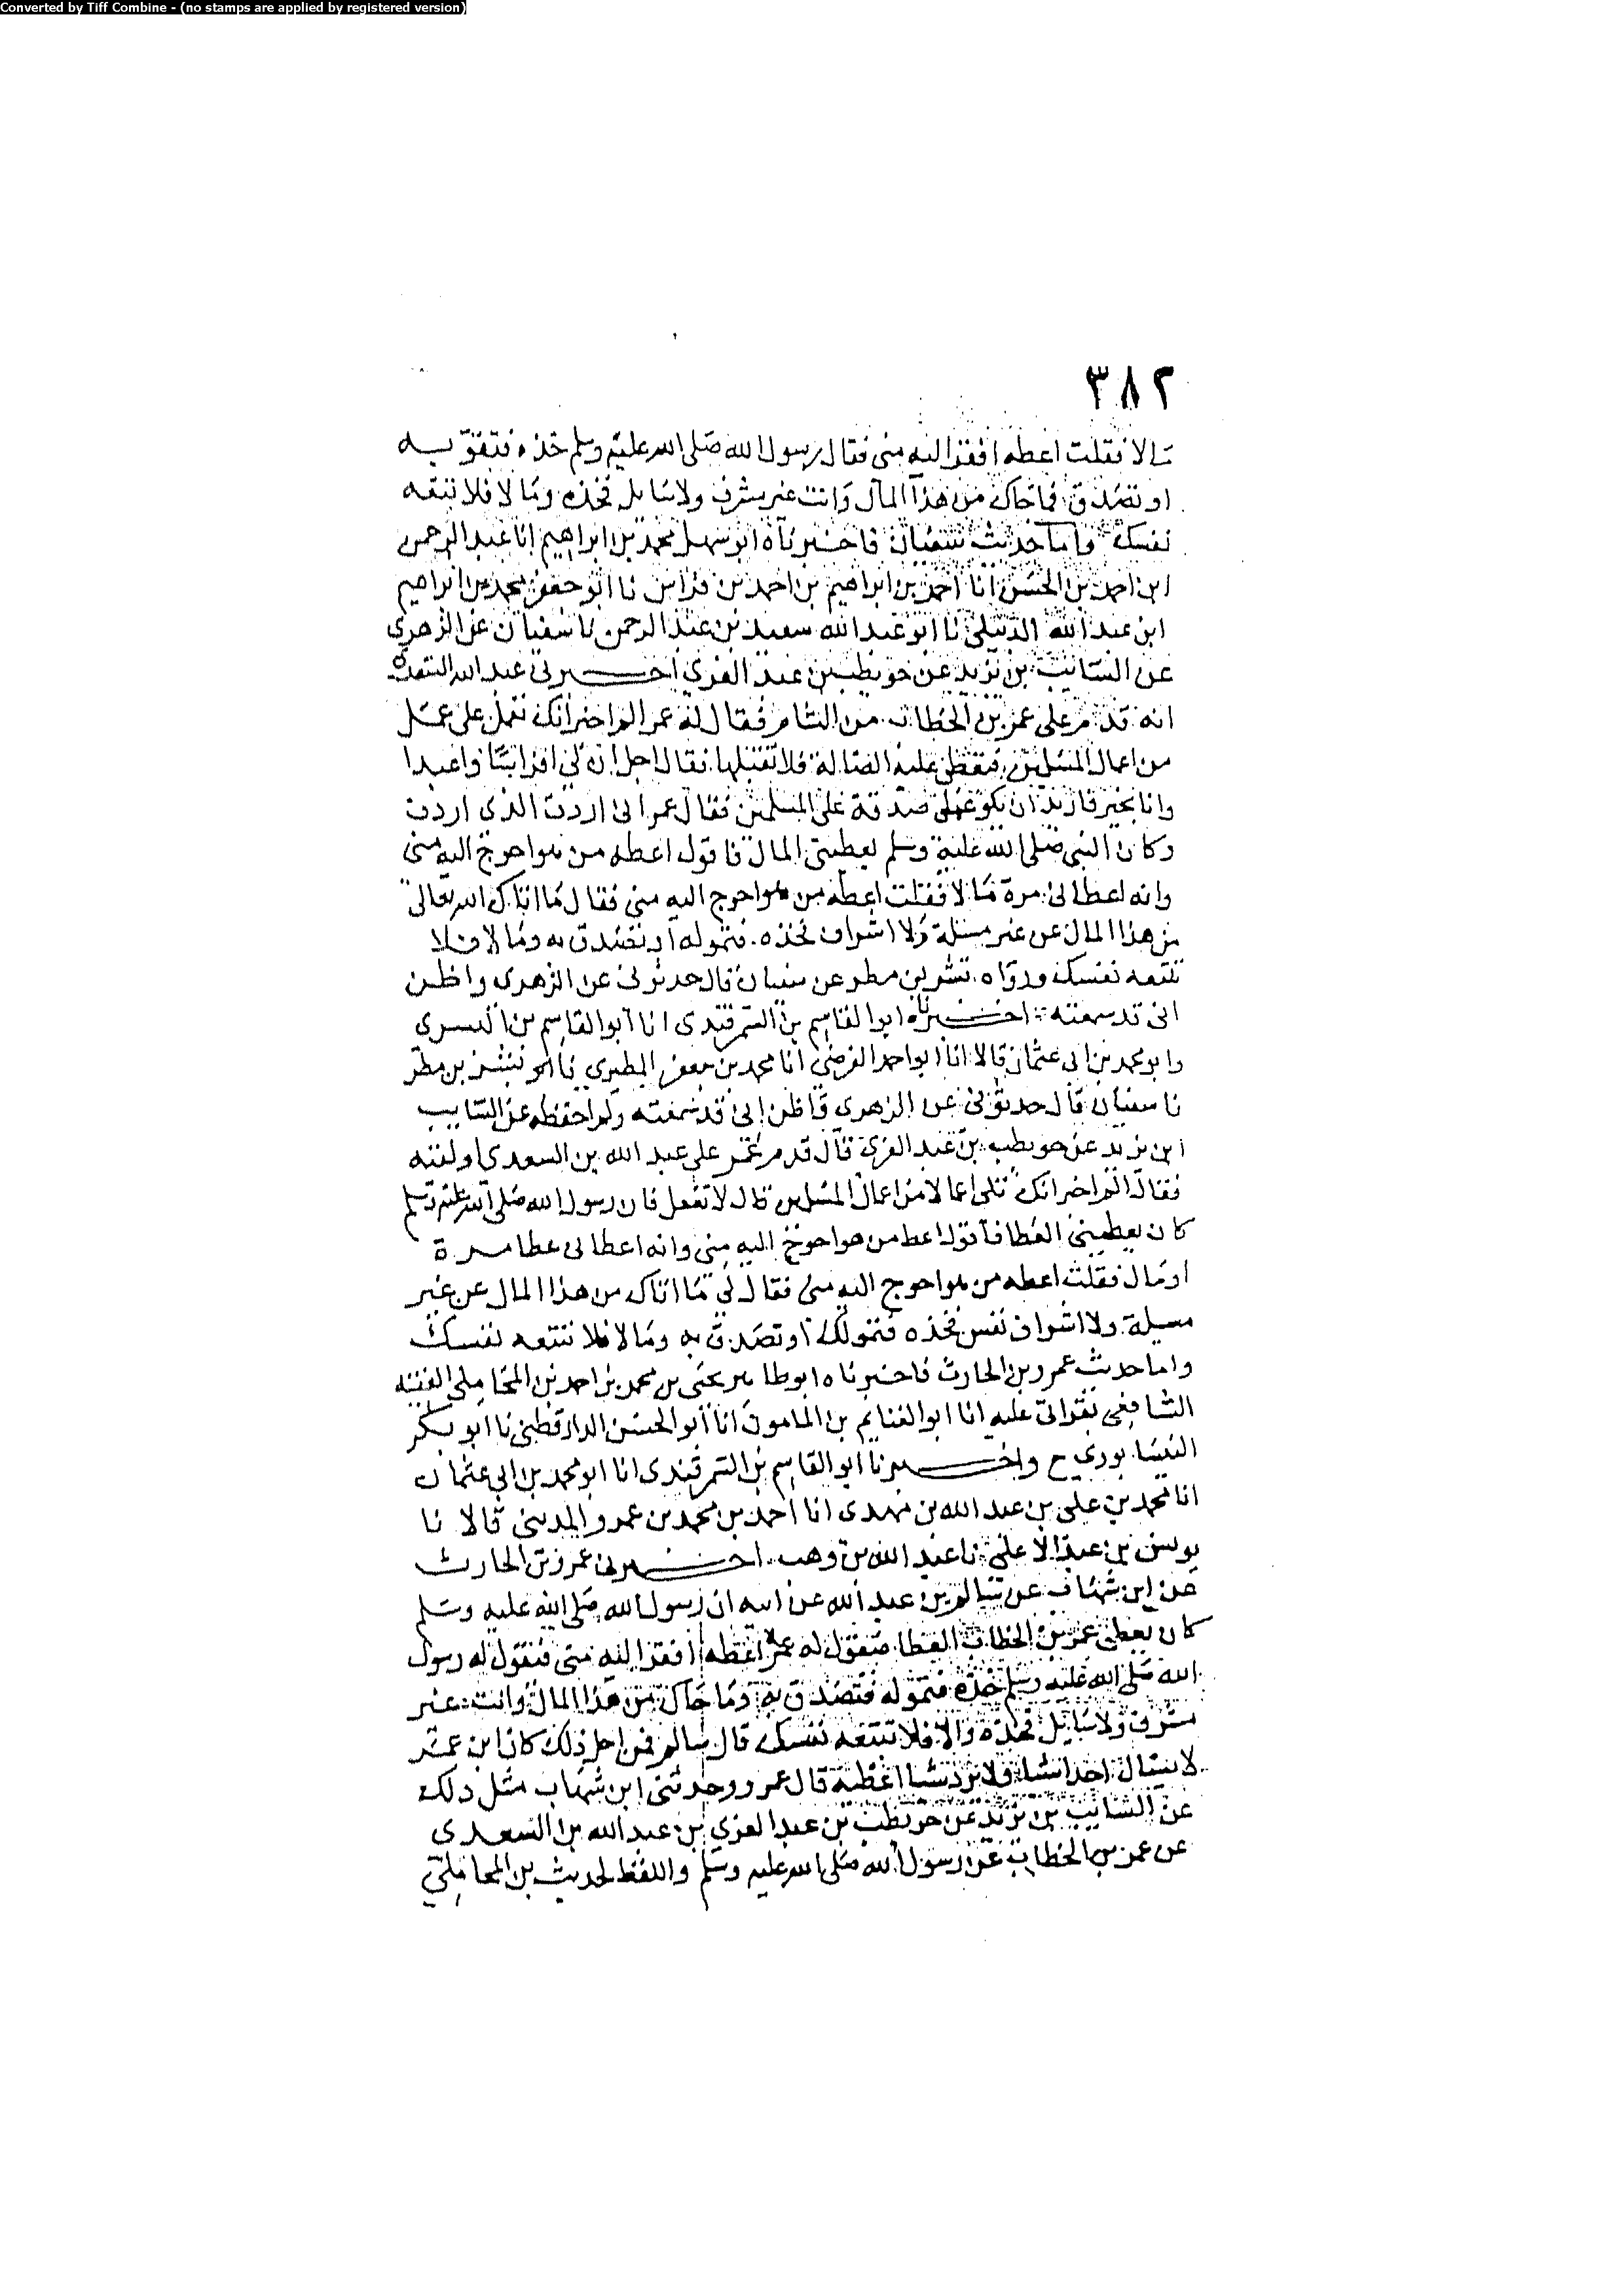 Converted by Tiff Combine - (no stamps are applied by registered version)
٣٨٢
مالا فقلت اعطه افقر اليه مني فقال رسول الله صلى الله عليه وسلم خذه فتقو به
او تصدق فما جاك من هذا المال وانت غير مشرف ولا سايل فخذه وما لا فلا تتبعه
نفسك واما حديث سفيان فاخبرناه ابو سهل محمد بن ابراهيم انا عبد الرحمن
ابن احمد بن الحسن انا احمد بن ابراهيم بن احمد بن فراس نا ابو جعفر محمد بن ابراهيم
ابن عبد الله الديبلي نا ابو عبد الله سعيد بن عبد الرحمن نا سفيان عن الزهري
عن السايب بن يزيد عن حويطب بن عبد العزي اخبرني عبد الله السعدي
انه قدم على عمر بن الخطاب من الشام فقال له عمر الم اخبر انك تعمل على عمل
من اعمال المسلمين فتعطى عليه العمالة فلا تقبلها فقال اجل ان لي افراسا واعبدا
وانا بخير فاريد ان يكون عملي صدقة على المسلمين فقال عمر اني اردت الذي اردت
وكان النبي صلى الله عليه وسلم يعطيني المال فاقول اعطه من هو احوج اليه مني
وانه اعطاني مرة مالا فقلت اعطه من هو احوج اليه مني فقال ما اتاك الله تعالى
من هذا المال عن غير مسلة ولا اشراف فخذه فتموله او تصدق به وما لا فلا
تتبعه نفسك ورواه بشر بن مطر عن سفيان قال حدثوني عن الزهري واظن
اني قد سمعته اخبرناه ابو القاسم بن السمرقندي انا ابو القاسم بن البسري
وابو محمد بن ابي عثمان قالا انا ابو احمد الفرضي انا محمد بن جعفر المطيري نا بشر بن مطر
نا سفيان قال حدثوني عن الزهري واظن اني قد سمعته ولم احفظه عن السايب
ابن يزيد عن حويطب بن عبد العزي قال قدم عمر على عبد الله بن السعدي او لقيه
فقال الم اخبر انك تلي اعمالا من اعمال المسلمين قال لا تفعل فان رسول الله صلى الله عليه وسلم
كان يعطيني العطا فاقول اعط من هو احوج اليه مني وانه اعطاني عطا مرة
او مال فقلت اعطه من هو احوج اليه مني فقال لي ما اتاك من هذا المال عن غير
مسيلة ولا اشراف نفس فخذه فتموله او تصدق به وما لا فلا تتبعه نفسك
واما حديث عمرو بن الحارث فاخبرناه ابو طاهر يحيى بن محمد بن احمد بن المحاملي الفقيه
الشافعي بقراتي عليه انا ابو الغنايم بن المامون انا ابو الحسن الدارقطني نا ابو بكر
النيسابوري ح واخبرنا ابو القاسم بن السمرقندي انا ابو محمد بن ابي عثمان
انا محمد بن علي بن عبد الله بن مهدي انا احمد بن محمد بن عمرو المديني قالا نا
يونس بن عبد الاعلى نا عبد الله بن وهب اخبرني عمرو بن الحارث
عن ابن شهاب عن سالم بن عبد الله عن ابيه ان رسول الله صلى الله عليه وسلم
كان يعطي عمر بن الخطاب العطا فيقول له عمر اعطه افقر اليه مني فيقول له رسول
الله صلى الله عليه وسلم خذه فتموله فتصدق به وما جاك من هذا المال وانت غير
مشرف ولا سايل فخذه والا فلا تتبعه نفسك قال سالم فمن اجل ذلك كان ابن عمر
لا يسال احدا شيا فلا يرد شيا اعطيه قال عمرو وحدثني ابن شهاب مثل ذلك
عن السايب بن يزيد عن حويطب بن عبد العزي بن عبد الله بن السعدي
عن عمر بن الخطاب عن رسول الله صلى الله عليه وسلم واللفظ لحديث بن المحاملي